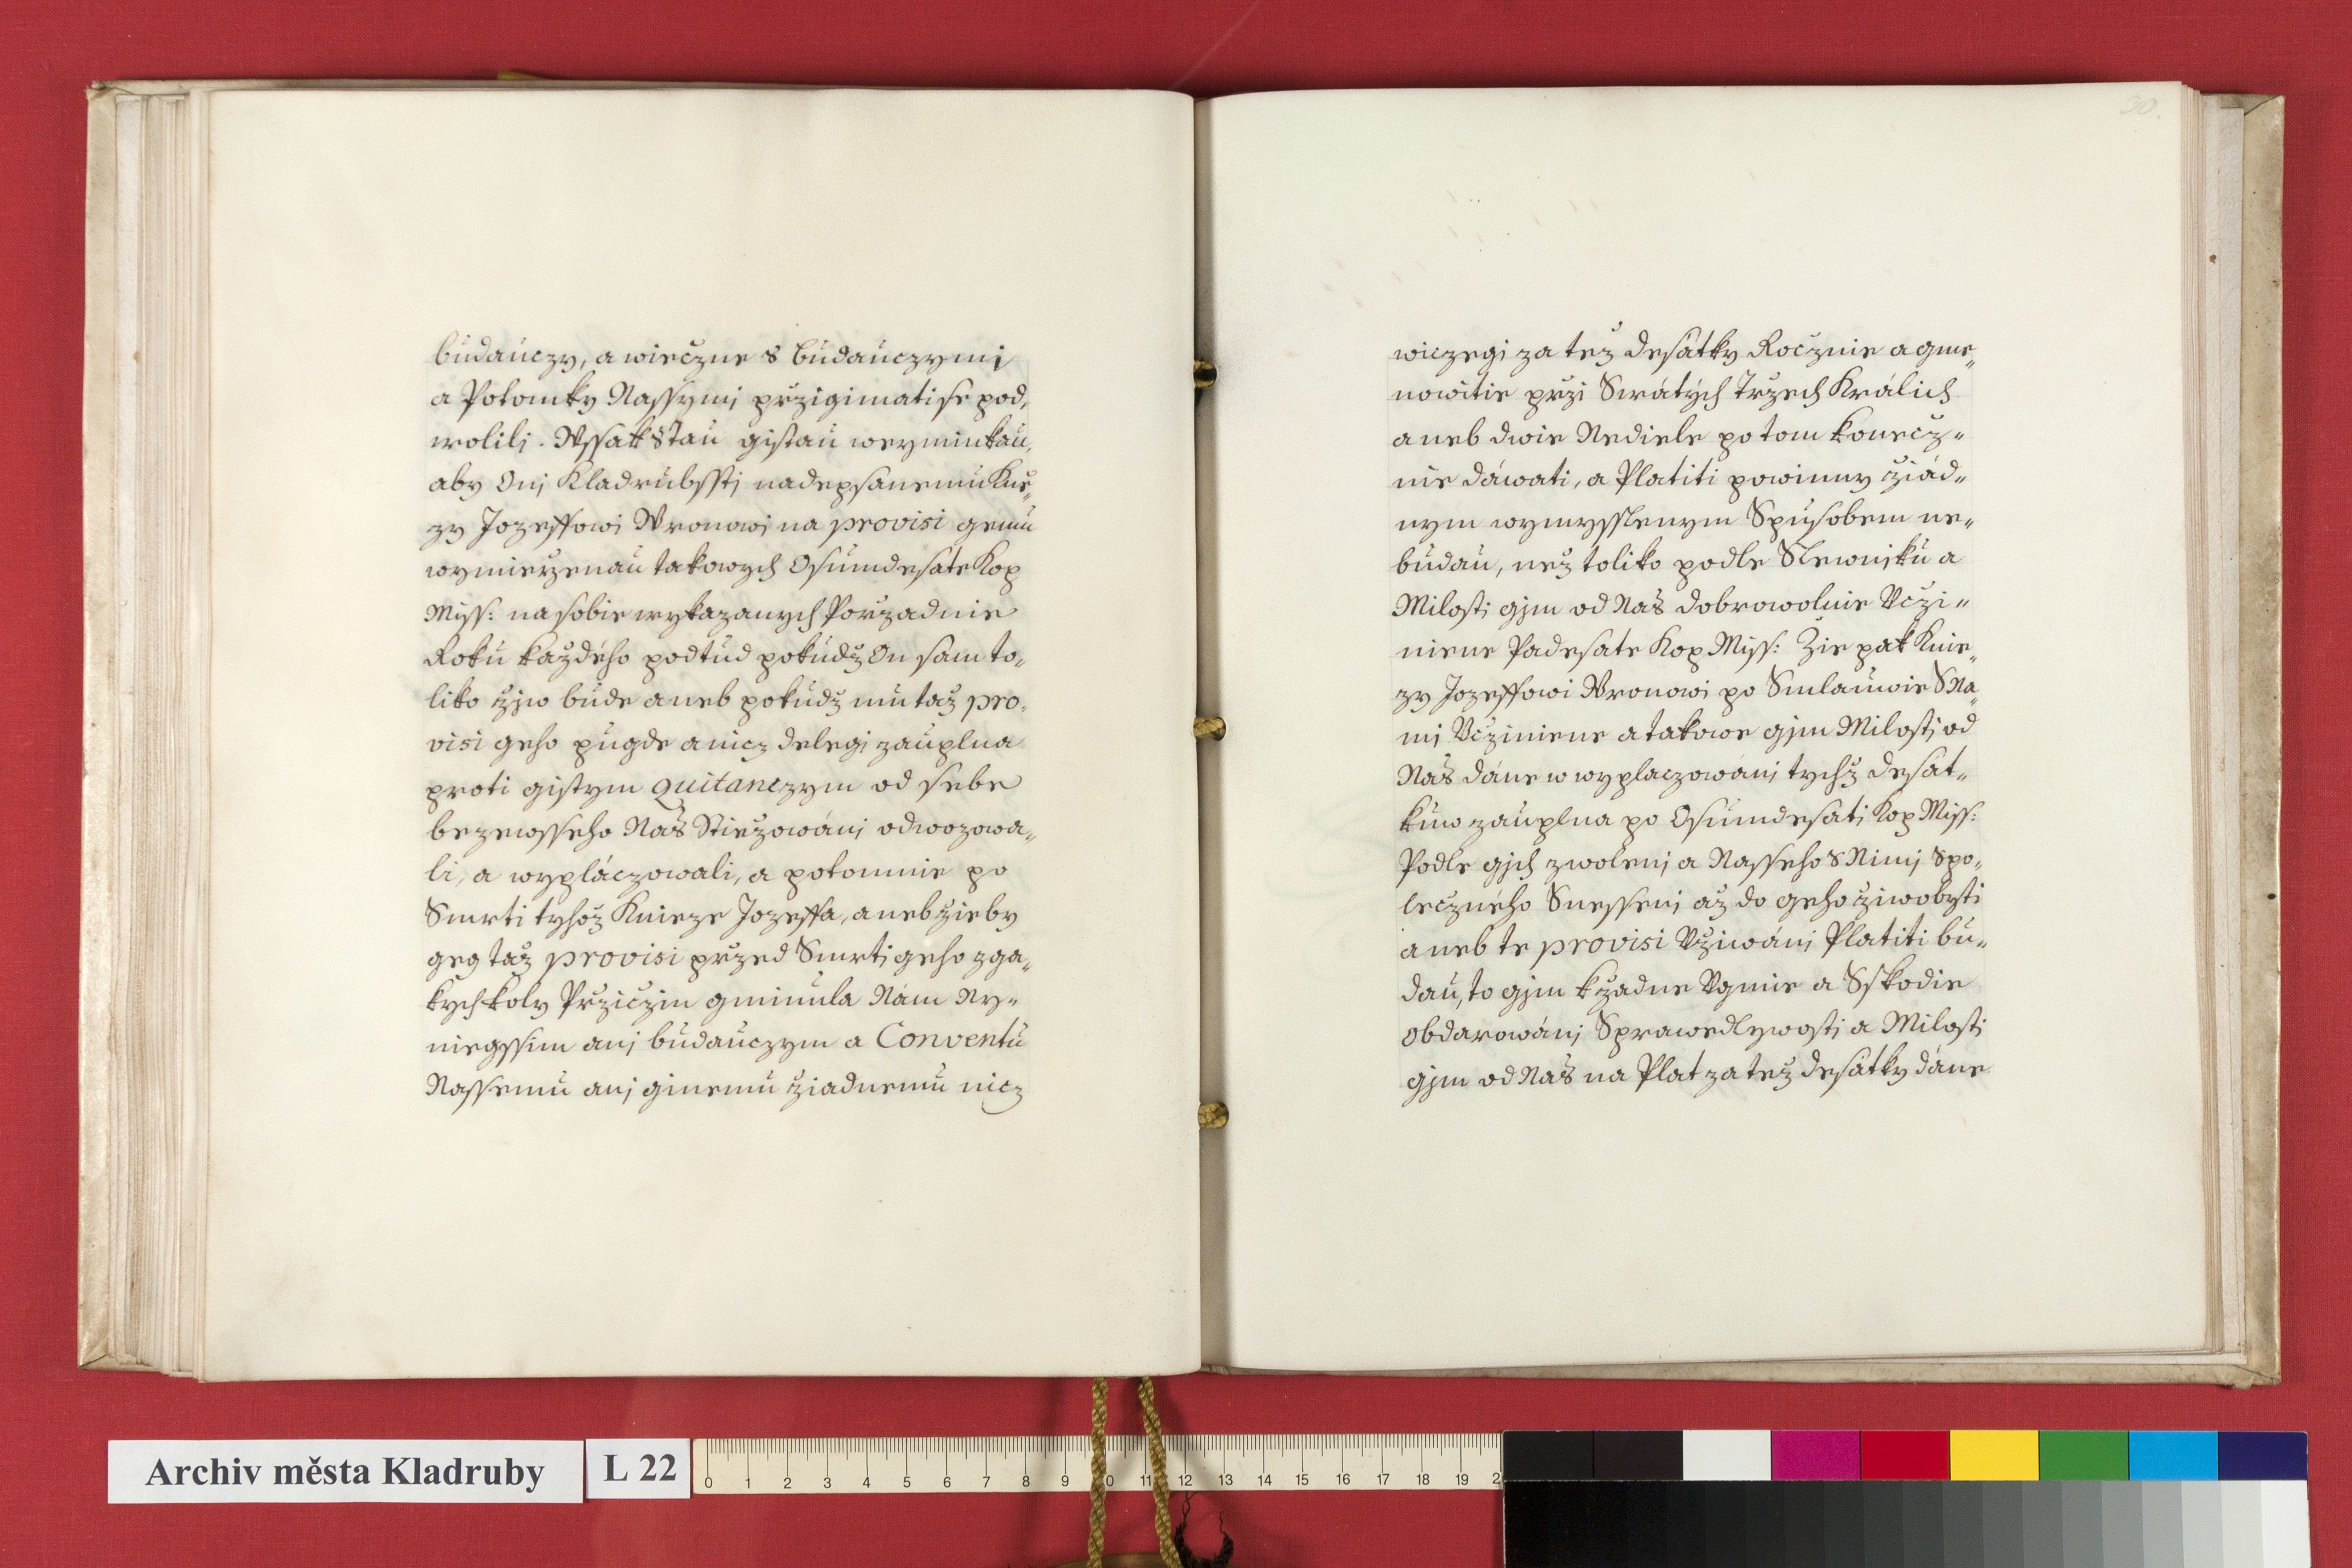 budauczy, a wieczne s budauczymi
a Potomky Nassymj przigimati se pod,
wolilj. Wssak s tau gistau weyminkau,
aby Onj Kladrubsstj nadepsanemu Kně,
zy Jozeffowi Wronowi na provisi gemu
wymierzenau takowych Osumdesate Kop
Miss: na sobie wykazanych Porzadnie
Roku každého podtud pokudž On sam to,
liko žiw bude aneb pokudž mu taž pro,
visi geho pugde a nicz delegi zauplna
proti gistym quitanczym od sebe
bezewsseho Nas Stiežowánj odwozowa,,
li, a wypláczowali, a potomnie po
Smrti tyhož Knieze Jozeffa, aneb žieby
geg taž provisi przed Smrtj geho z ga,,
kychkoly Przicžin gminula Nám Ny,,
niegssim anj budauczym a Conventu
Nassemu anj ginemu žiadnemu nicz
30.
wiczegi za tež desatky Rocžnie a gme,,
nowitie przi Swátých Trzech Králich
aneb dwie Nediele potom konecž,,
nie dáwati, a Platiti powinny žiád,,
nym wymysslenym Spusobem ne,,
budau, než toliko podle Slewnjku a
Milosti gjm od Nas dobrowolnie Vcži,,
niene Padesate Kop Miss: Žie pak Knie,,
zy Jozeffowi Wronowi po Smlauwie S Na,,
mj Vcžiniene a takowe gjm Milostj od
Nas dáne w wyplaczowánj tychž desat,,
kuw zauplna po Osumdesati Kop Miss:
Podle gjch zwolenj a Nasseho S Nimj Spo,,
lecžného Snessenj až do geho žiwobyti
aneb te provisi Vžiwánj Platiti bu,,
dau, to gjm k žadne Vgmie a Sskodie
Obdarowánj Sprawedlywostj a Milostj
gjm od Nas na Plat za tež desatky dáne
Archiv města Kladruby
L 22
0 1 2 3 4 5 6 7 8 9 0 11 12 13 14 15 16 17 18 19 2